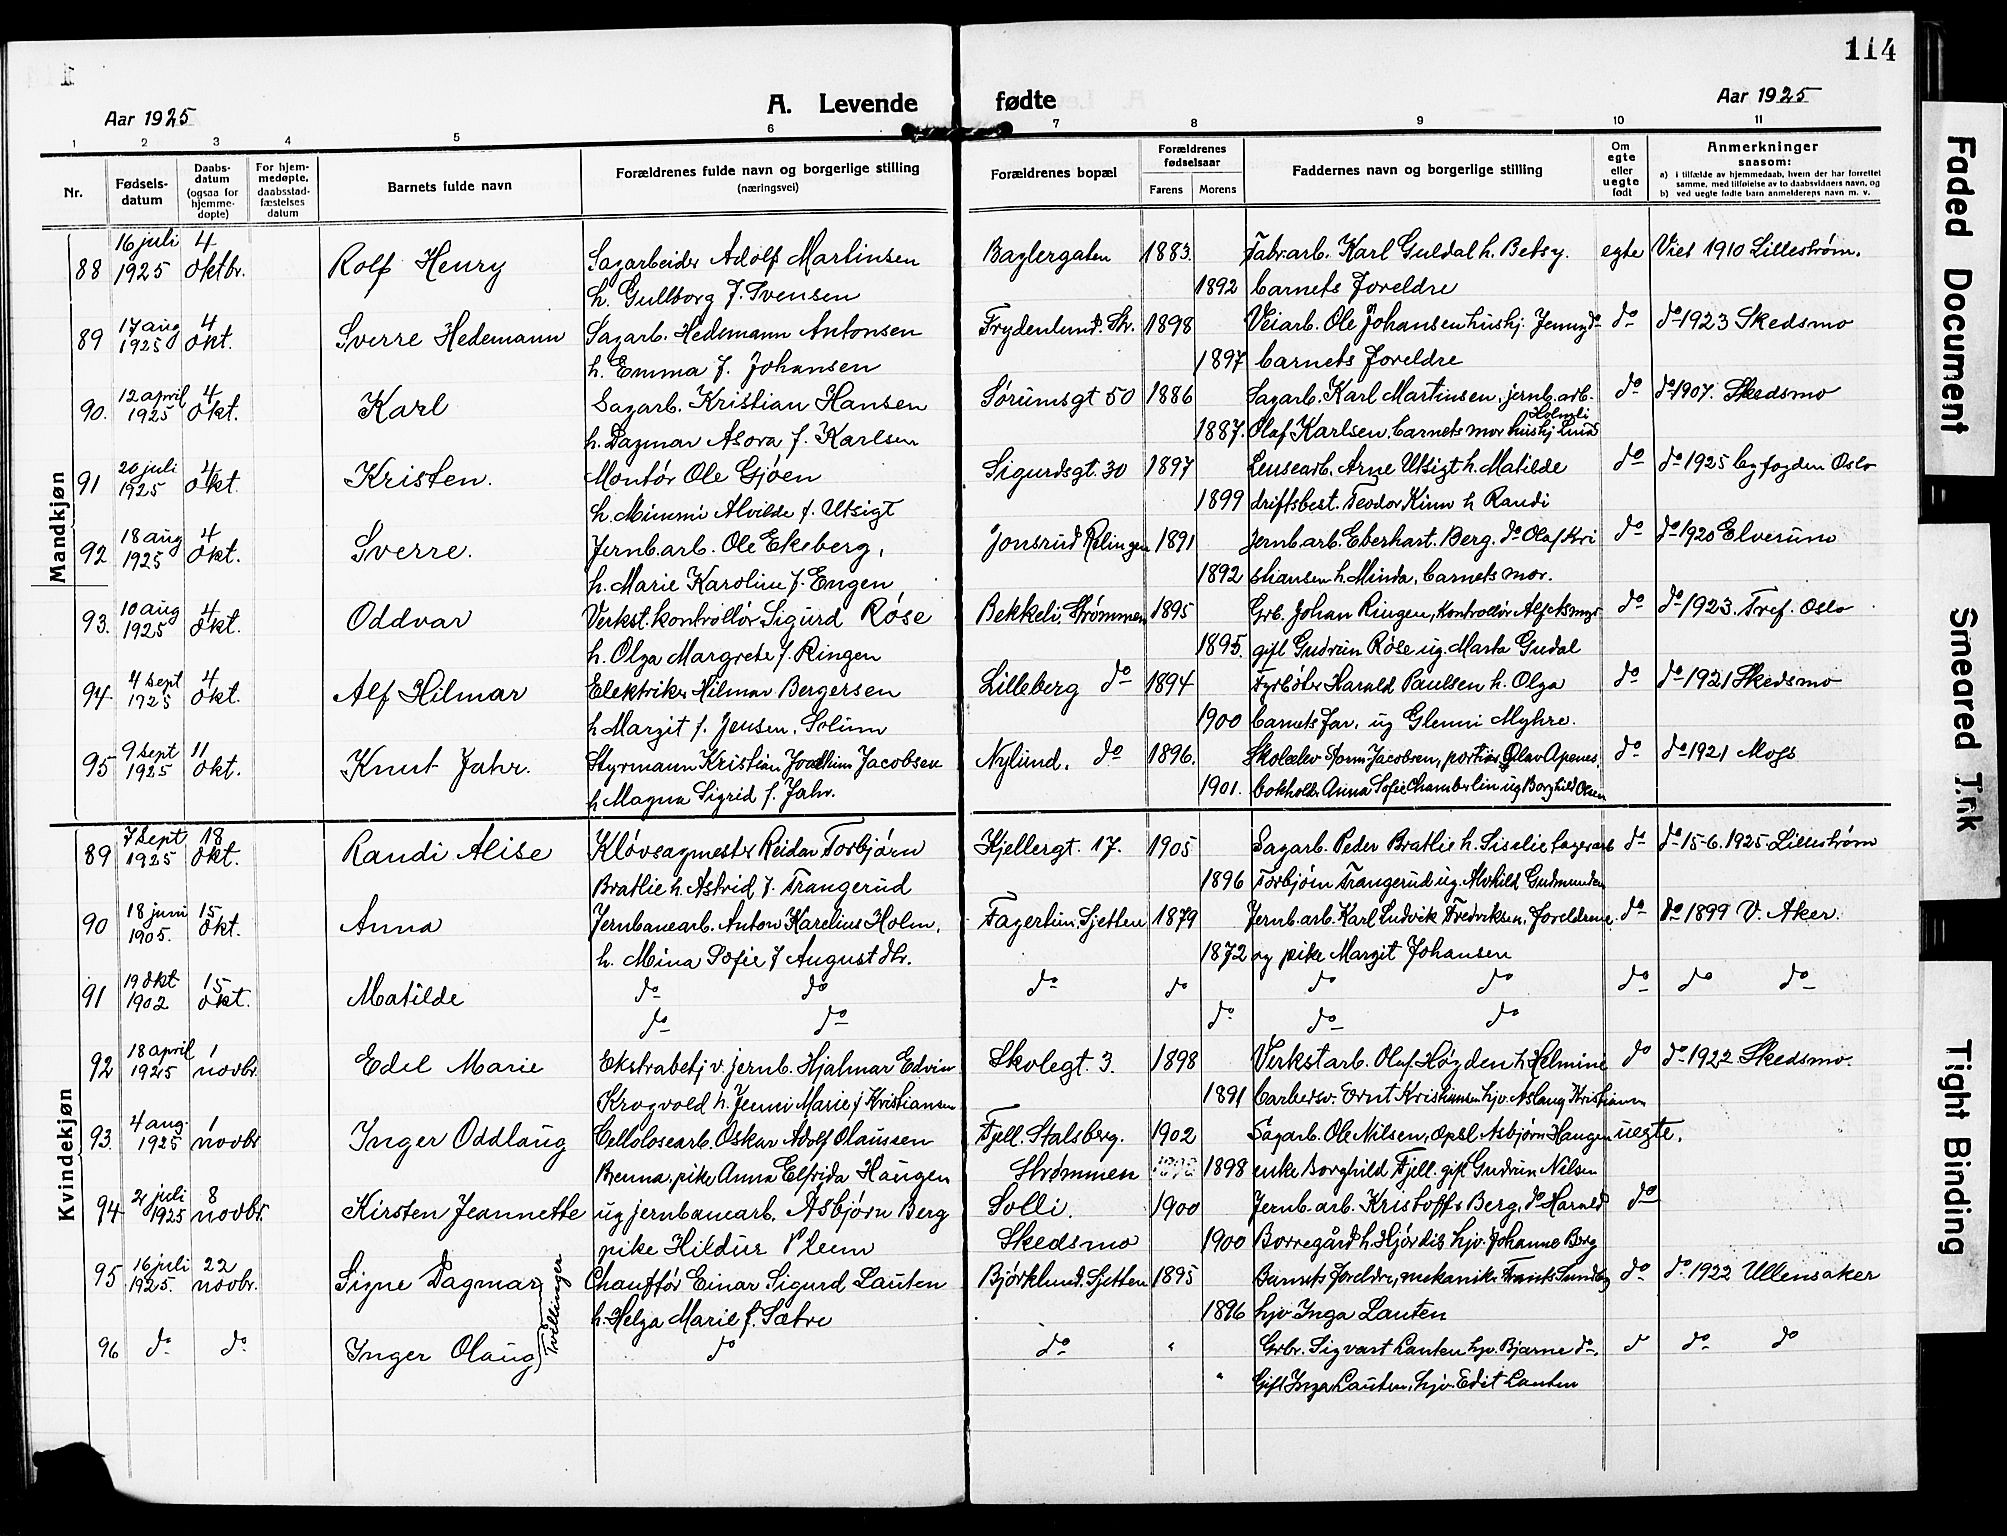 114
Aar 1925
A. Levende fødte
Aar 1925
1 2 3 4 5 6 7 8 9 10 11
Nr.
Fødsels-
datum
Daabs-
datum
(ogsaa for
hjemme-
døpte)
For hjem-
medøpte,
daabsstad-
fæstelses
datum
Barnets fulde navn
Forældrenes fulde navn og borgerlige stilling
(næringsvei)
Forældrenes bopæl
Forældrenes
fødselsaar
Farens Morens
Faddernes navn og borgerlige stilling
Om
egte
eller
uegte
født
Anmerkninger
saasom:
a) i tilfælde av hjemmedaab, hvem der har forrettet
samme, med tilføielse av to daabsvidners navn, og
b) ved uegte fødte barn anmelderens navn m. v.
Mandkjøn
16 juli 4
88 1925 oktbr. Rolf Henry Sagarbeider Adolf Martinsen Baglergaten 1883. Fabr.arb. Karl Guldal h. Betsy. egte Viet 1910 Lillestrøm.
h. Gullborg f. Svensen 1892 barnets foreldre
17 aug 4
89 1925 okt. Sverre Hedemann Sagarb. Hedemann Antonsen Frydenlund. Str. 1898 Veiarb. Ole Johansen hushj. Jenny do do do 1923 Skedsmo
h. Emma f. Johansen 1897 barnets foreldre
12 april 4
90. 1925 okt. Karl Sagarb. Kristian Hansen Sørumsgt 50 1886 Sagarb. Karl Martinsen, jernb.arb. do do 1907. Skedsmo
Holmli
h. Dagmar Asora f. Karlsen 1887. Olaf Karlsen, barnets mor hushj
20 juli 4
91 1925 okt. Kristen. Montør Ole Gjøen Sigurdsgt. 30 1897 Lensearb. Arne Utsigt h. Matilde do do 1925 byfogden Oslo
h. Mimmi Alvilde f. Utsigt 1899 driftsbest. Teodor Kinn h Randi
18 aug 4
92 1925 okt. Sverre. Jernb.arb. Ole Ekeberg, Jonsrud Relingen 1891 Jernb.arb. Eberhart. Berg. do Olaf Kri do do 1920 Elverum
h. Marie Karoline f. Engen 1892 stiansen h. Minda, barnets mor.
10 aug 4
93. 1925 okt. Oddvar Verkst.kontrollør Sigurd Røse Bekkeli, Strømmen 1895 Grb. Johan Ringen, Kontrollør do do 1923. Tref. Oslo
h. Olga Margrete f. Ringen 1895. gift Gudrun Røse ug. Marta Gudal
4 sept 4
94 1925 okt. Alf Hilmar Elektriker Hilmar Bergersen Lilleberg do 1894 Fyrbøter Harald Paulsen h. Olga do do 1921 Skedsmo
h Margit f. Jensen, Solum 1900 barnets far, ug Glenni Myhre.
9 sept 11
95 1925 okt. Knut Jahr. Styrmann Kristian Joachim Jacobsen Nylund. do 1896. Skoleelev Jacobsen, portier Olav Apenes, do do 1921 Moss
h Magna Sigrid f. Jahr. 1901. bokholder Anna Sofie Chamberlin ug Borghild Olsen
Kvindekjøn
7 sept 18
89 1925 okt. Randi Alise Kløvsagmester Reidar Torbjørn Kjellergt. 17. 1905 Sagarb. Peder Bratlie h. Siselie lagerarb do do 15-6.1925. Lillestrøm
Bratlie h. Astrid f. Trangerud 1896 Torbjørn Trangerud ug. Alvhild Gudmundsen
18 juni 15
90 1905. okt. Anna Jernbanearb. Anton Karelius Holm, Fagertun, Sjetten 1879 Jernb.arb. Karl Ludvik Fredriksen, foreldrene do do 1899 V. Aker.
h. Mina Sofie f August dtr. 1872 og pike Margit Johansen
19 okt 15
91 1902 okt. Matilde do do do do do do do do do
do do do do do
18 april 1
92 1925 novbr. Edel Marie Ekstrabetj v. jernb. Hjalmar Edvin Skolegt. 3. 1898 Verkstarb. Olaf Høgden h Helmine do do 1922 Skedsmo.
Krogvold h. Jenni Marie f Kristiansen 1891 barbersv. Ernt Kristiansen hjv. Aslaug Kristiansen
4 aug. 1
93. 1925 novbr Inger Oddlaug Cellolosearb. Oskar Adolf Olaussen Fjell. Stalsberg. 1902 Sagarb. Ole Nilsen, Opsl Asbjørn Haugen uegte.
Benna, pike Anna Elfrida Haugen Strømmen 1898 enke Borghild Fjell. gift Gudrun Nilsen
21 juli 8
94 1925 novbr. Kirsten Jeannette ug jernbanearb. Asbjørn Berg Solli. 1900 Jernb.arb. Kristoffer Berg, do Harald do
pike Hildur Pleem Skedsmo 1900 Borregård h. Hjørdis hjv. Johanne Berg
16 juli 22
95 1925. novbr. Signe Dagmar Chauffør Einar Sigurd Lauten Bjørklund. Sjetten 1895 Barnets foreldre, mekaniker Sundby do do 1922 Ullensaker
Tvillinger
h. Helga Marie f. Sætre 1896 hjv Inga Lauten
96 do do Inger Olaug do do " Grbr. Sigvart Lauten hjv. Bjarne do. d do do
" Gift Inga Lauten, hjv. Edit Lauten
Faded Document
Smeared Ink
Tight Binding